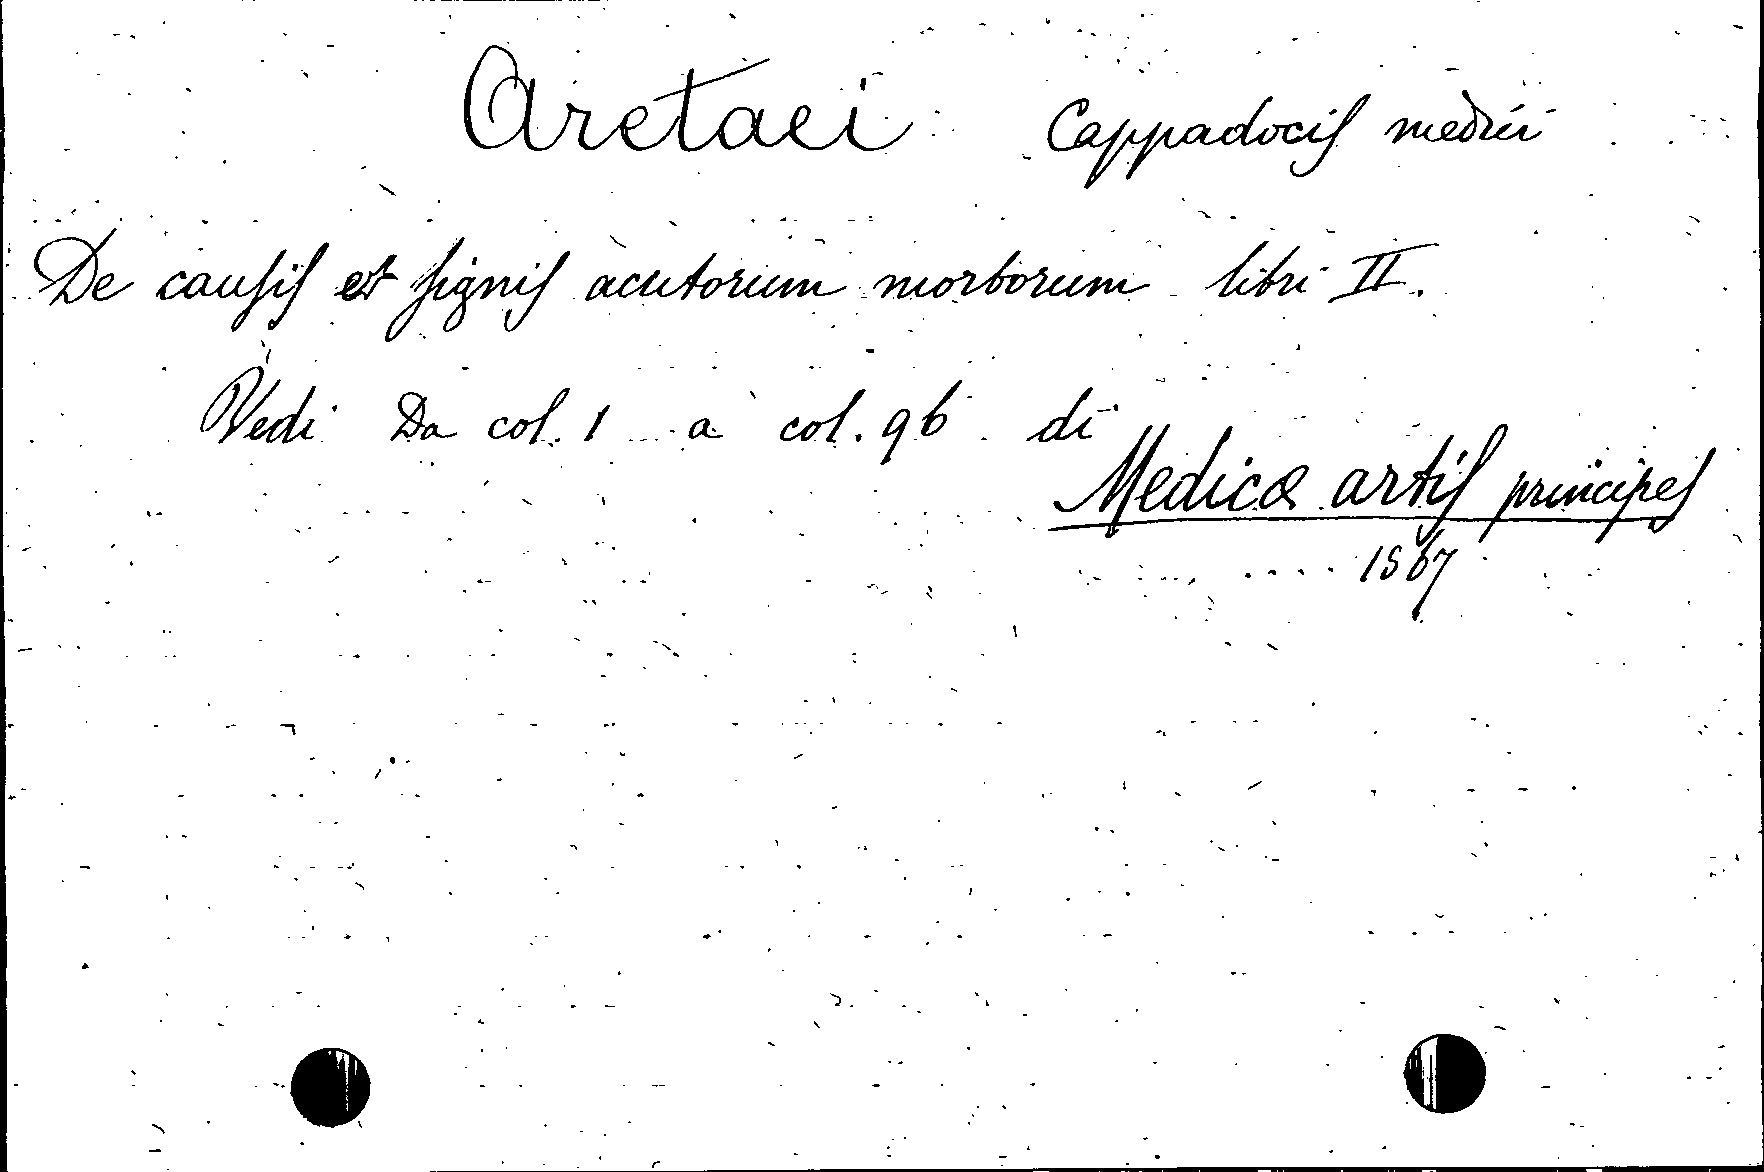 Aretaei Cappadocis medici
De causis et signis acutorum morborum libri II.
Vedi Da col. 1 a col. 96 di
Medicæ artis principes
1567